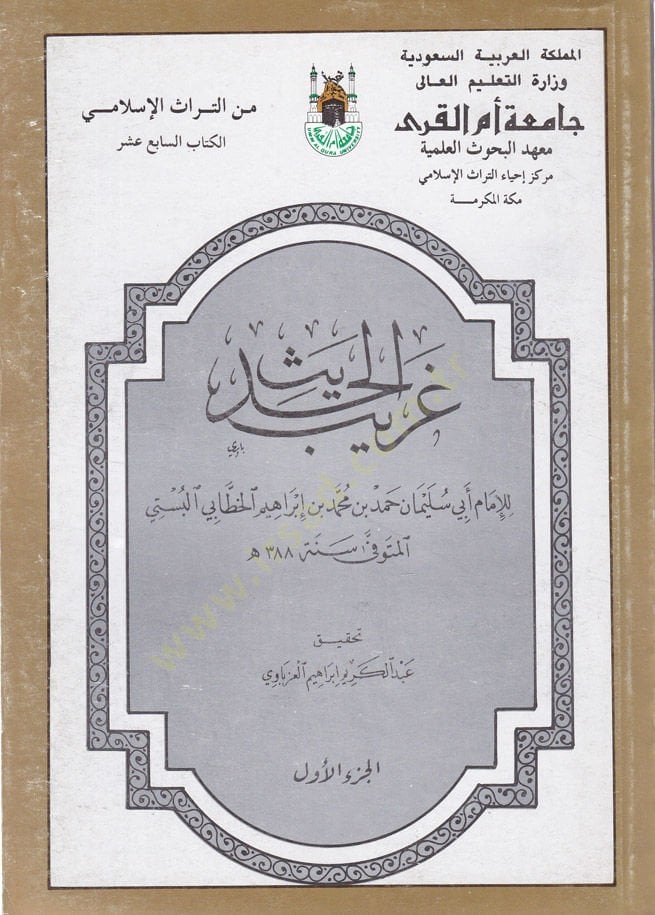 المملكة العربية السعودية
وزارة التعليم العالى
جامعة أم القرى
معهد البحوث العلمية
مركز إحياء التراث الإسلامي
مكة المكرمـــة
من التراث الإسلامـي
الكتاب السابع عشر
UMM AL QURA UNIVERSITY
غريب الحديث
للإمام أبي سليمان حمد بن محمد بن إبراهيم الخطابي البستي
المتوفى سنة ٣٨٨ هـ
تحقيق
عبد الكريم إبراهيم العزباوي
الجزء الأول